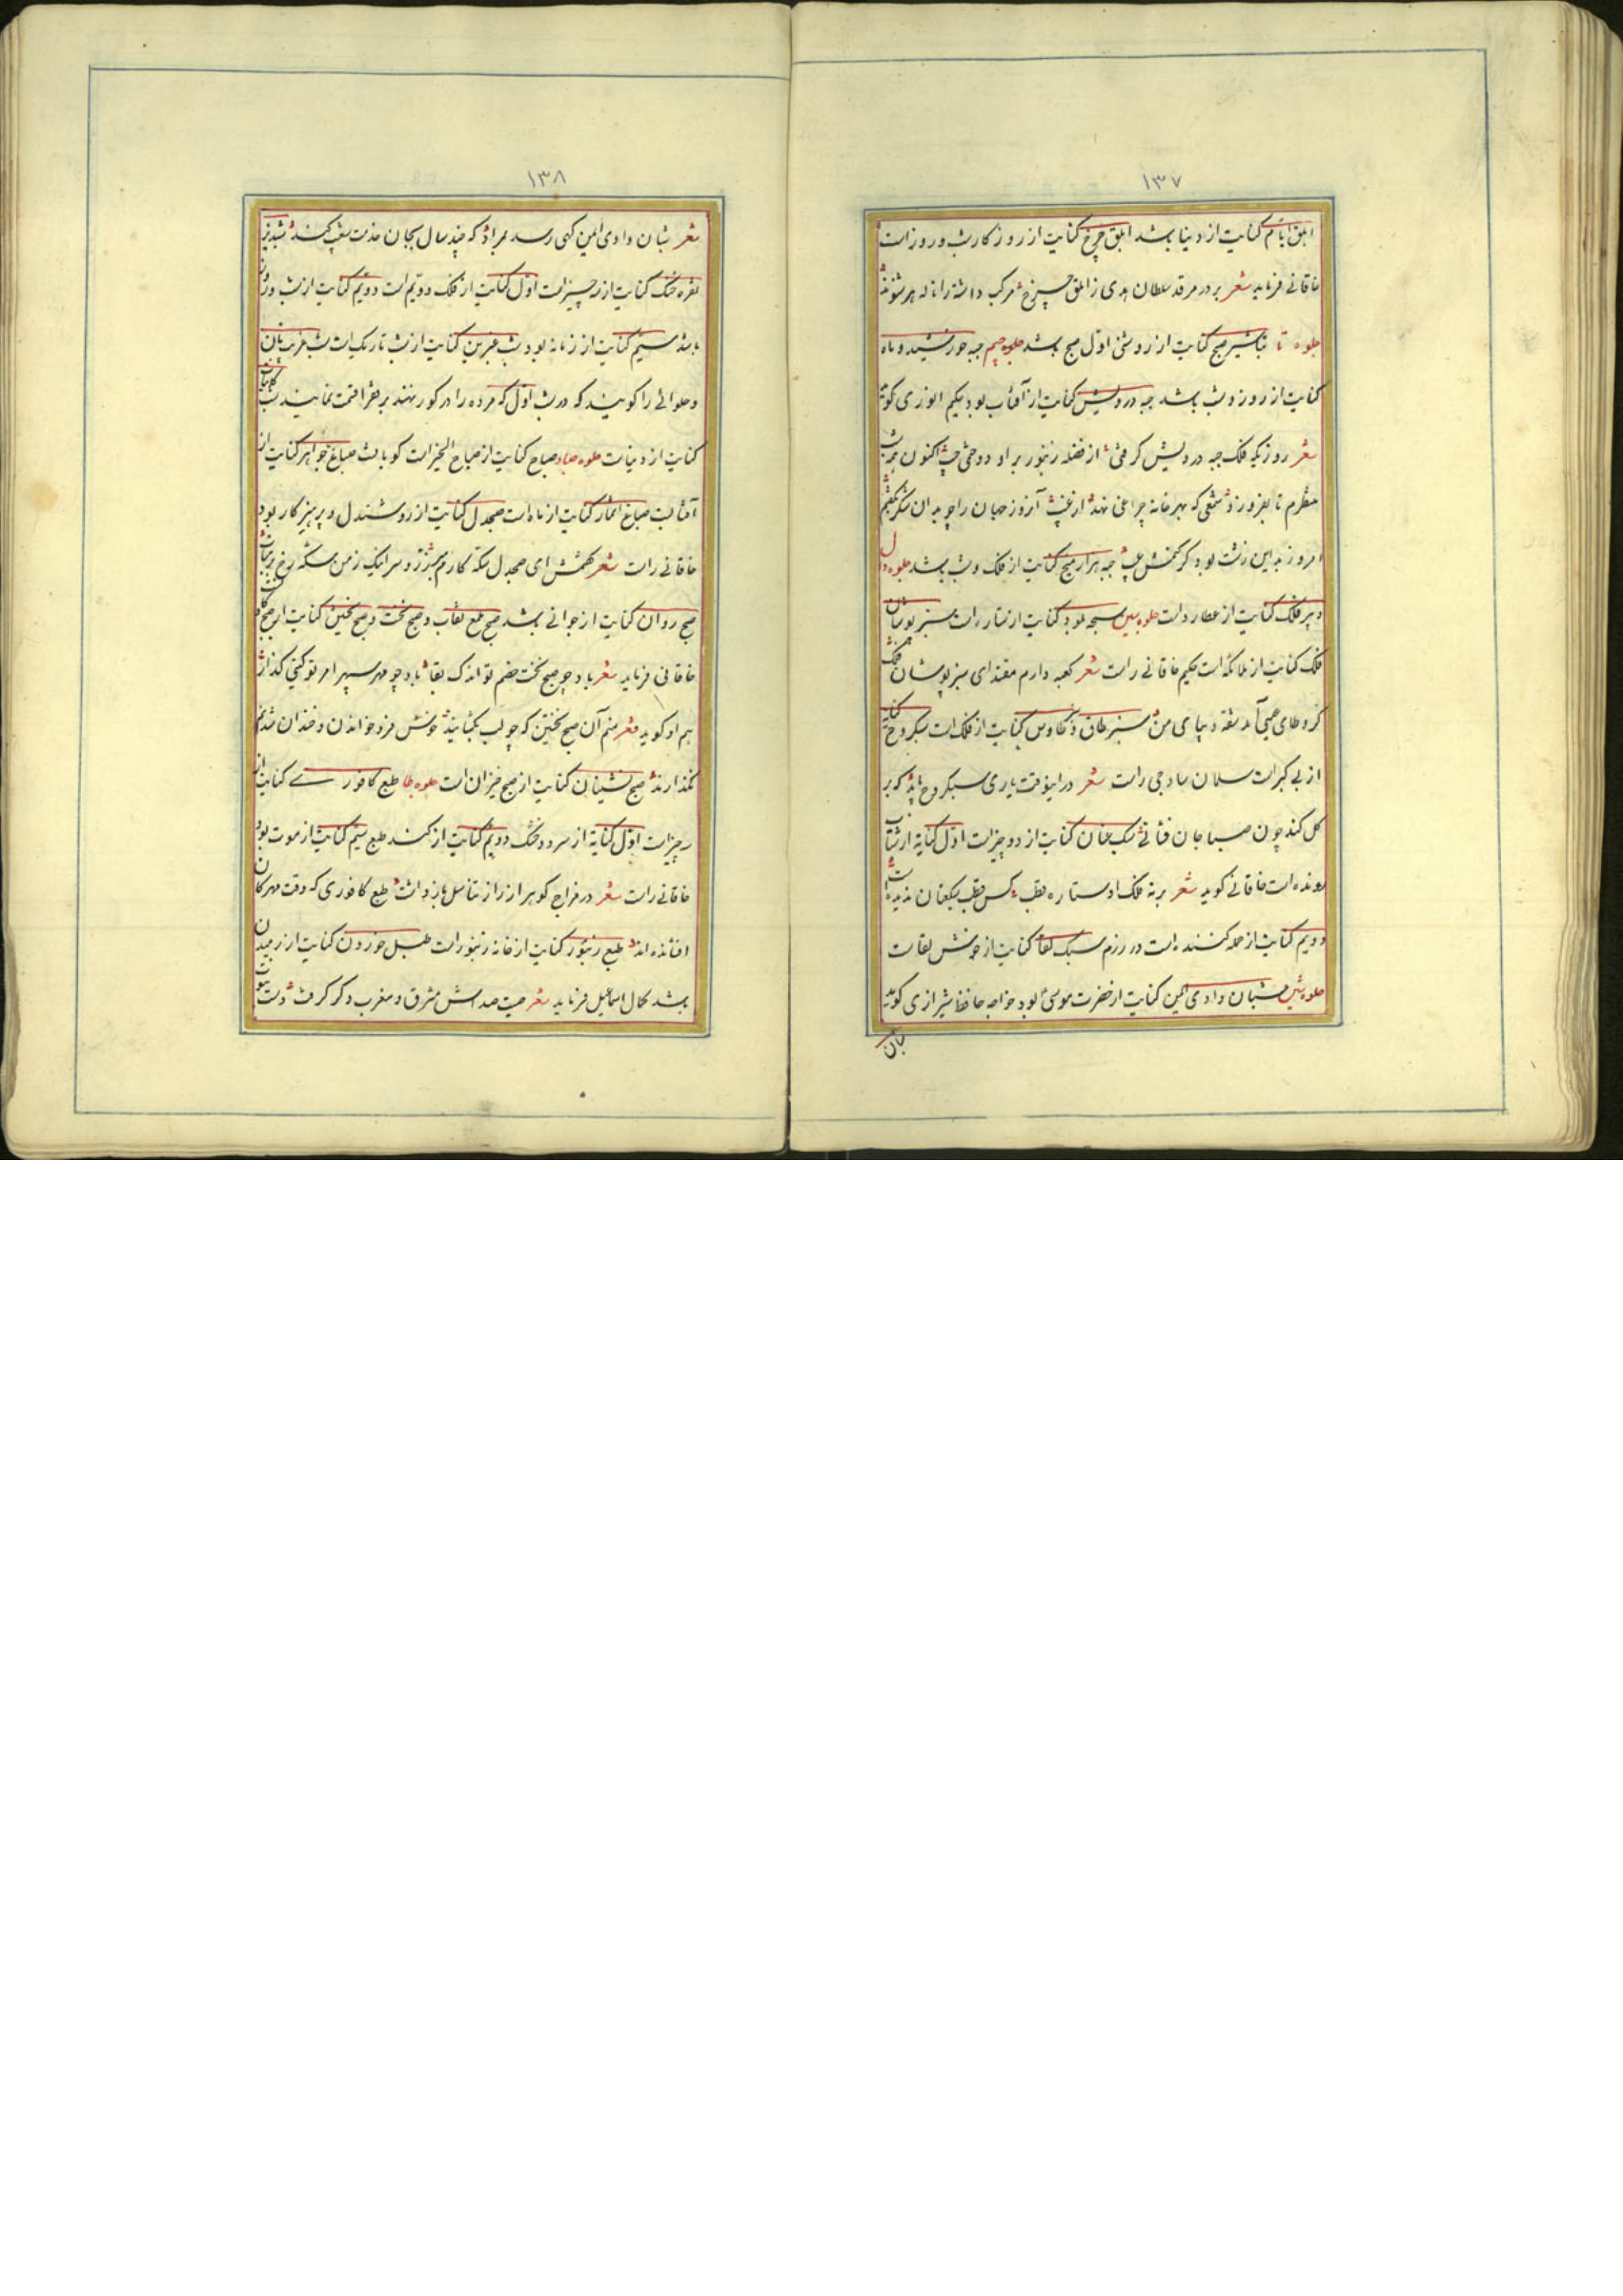 ۱۳۷
ابلق ایام کنایت از دنیا باشد ابلق چرخ کنایت از روزکار شب و روز است
خاقانی فرماید شعر بر در مرقد سلطان هدی ز ابلق چرخ مرکب داشته را ناله هر شنوند
جلوه تا تباشیر صبح کنایت از روشنی اول صبح باشد جلوه جیم جبه خورشید و ماه
کنایت از روز و شب باشد جبه درویش کنایت از آفتاب بود حکیم انوری کوید
شعر روزیکه فلک جبه درویش کرفتی از فضله زنبور بر او دوختی جیب اکنون همه شب
منتظرم تا بفروزد شمعی که بهر خانه چراغی نهد از غیب آنروز جهان را چو بدان شکر نکفتم
امروز بدین زشت بود کر کنمش عیب جبه هزار میخ کنایت از فلک و شب باشد جلوه دال
دبیر فلک کنایت از عطارد است جلوه سین سبحه بلور کنایت از ستاره است سبزپوشان
فلک کنایت از ملائکه است حکیم خاقانی راست شعر کعبه دارم مقتدای سبزپوشان فلک
کز وطای عیسی آمد شقه دیبای من سبز طاق و طاوس کنایت از فلک است سبکروح کنایت
از بی کبر است سلمان ساوجی راست شعر در اینوقت یاری سبکروح باید که بر
کل کند چون صبا جان فشانی سبک عنان کنایت از دو چیز است اول کنایة از شتاب
رونده است خاقانی کوید شعر برنه فلک او ستاره قطب کس قطب سبکعنان ندیده است
دویم کنایت از حمله کننده است در رزم سبک لقا کنایت از خوش لقاست
جلوه شین شبان وادی ایمن کنایت از حضرت موسی بود خواجه حافظ شیرازی کوید
شبان
۱۳۸
شعر شبان وادی ایمن کهی رسد بمراد که چند سال بجان خدمت شعیب کند شبدیز
نقره خنک کنایت از سه چیز است اول کنایت از فلک دویم است دویم کنایت از شب و روز
باشد سیم کنایت از زمانه بود شب عنبرین کنایت از شب تاریک است شب غریبان
و حلوائی را کویند که در شب اول که مرده را در کور نهند بر فقرا قسمت نمایند شب
کنایت از دنیاست جلوه صاد صباح کنایت از صباح الخیر است کویا صباغ جواهر کنایت از
آفتابست صباغ اثمار کنایت از ماه است صبحدل کنایت از روشندل و پرهیزکار بود
خاقانی راست شعر کفتمش ای صبحدل سکه کارم مبر زر و سر اینک ز من سکه رخ بر متاب
صبح روان کنایت از جوانی باشد صبح ملمع نقاب و صبح نخست و صبح نخستین کنایت از صبح کاذب
خاقانی فرماید شعر باد چو صبح نخست خصم تو اندک بقا باد چو مهر سپهر امر تو کیتی کذار
هم او کوید شعر منم آن صبح نخستین که چو لب بکشایند خوش فرو خواندن و خندان شدنم
نکذارند صبح نشینان کنایت از صبح خیزان است جلوه طا طبع کافوری کنایت از
سه چیز است اول کنایة از سرد و خنک دویم کنایت از کند طبع سیم کنایت از موت بود
خاقانی راست شعر در مزاج کوهر از راز تناسل باز داشت طبع کافوری که وقت مهرکان
افشانده اند طبع زنبور کنایت از خانه زنبور است طبل خوردن کنایت از رمیدن
باشد کمال اسماعیل فرماید شعر صیت صداش مشرق و مغرب دکر کرفت دست